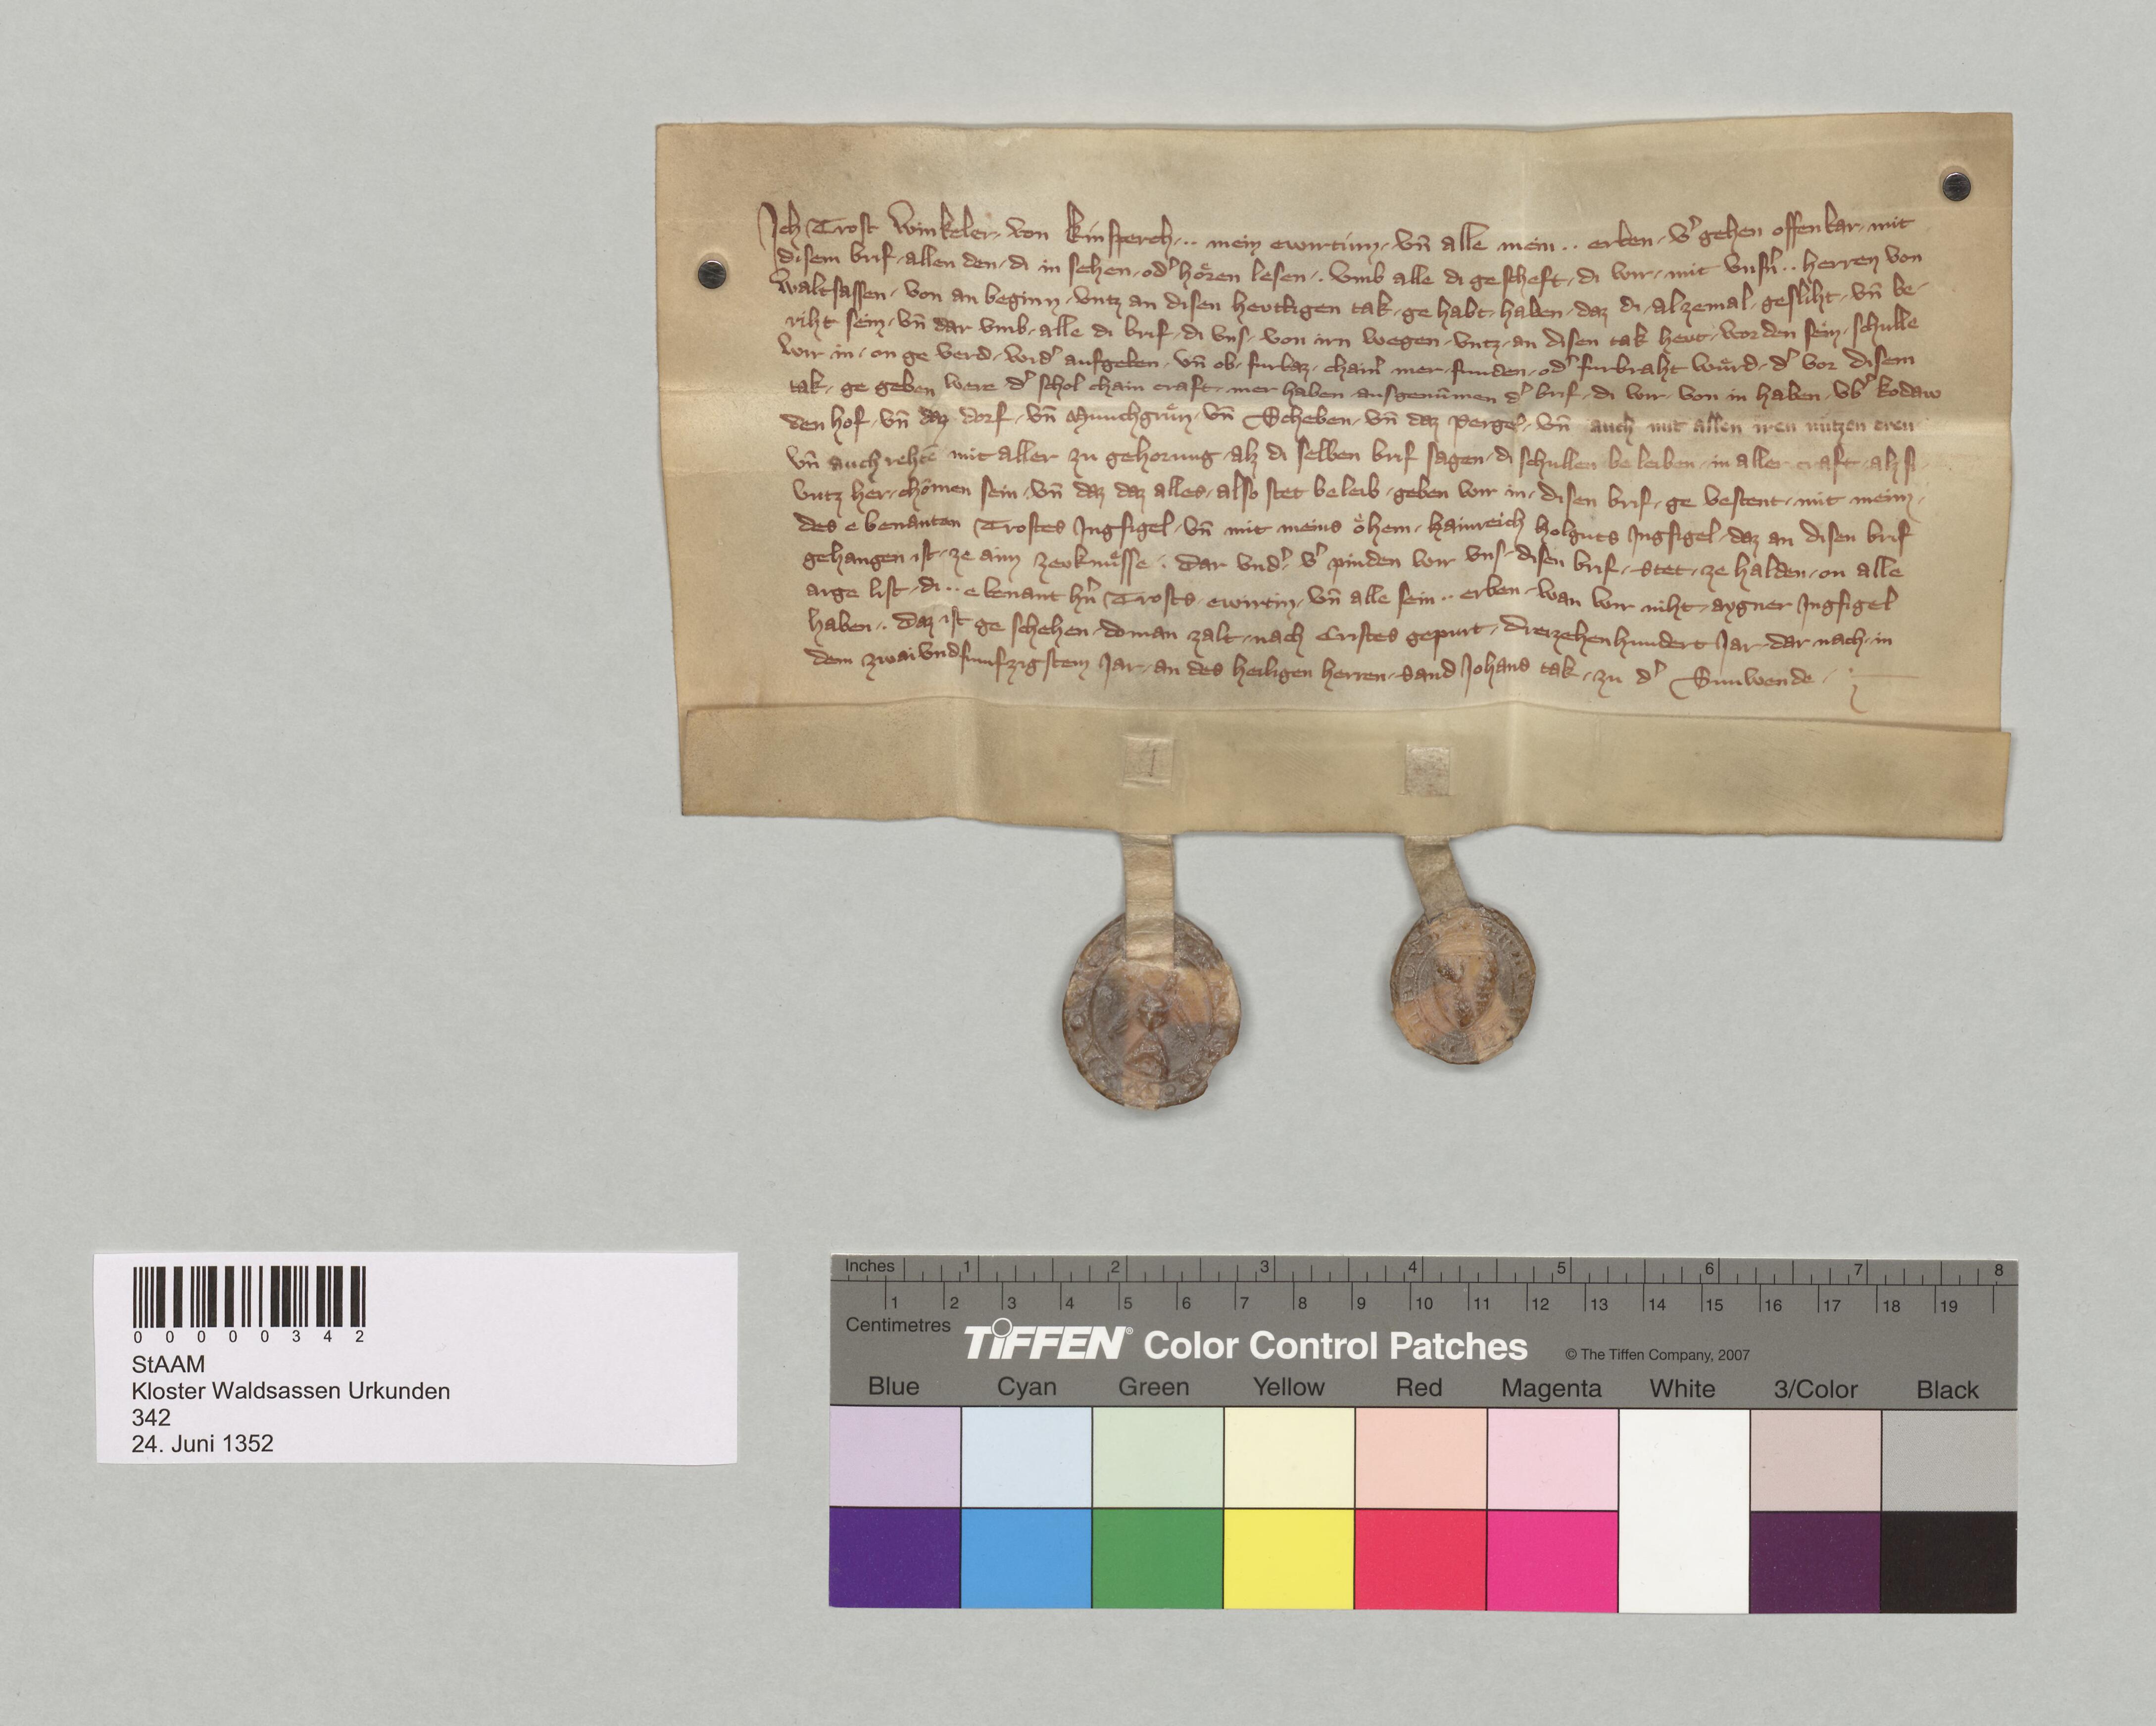 Ich Trost Winkeler von Kinsperch .. mein ewirtinn vn̄ alle mein .. erben v͛gehen offenbar mit
disem brif allen den di in sehen od͛ hoͤren lesen . vmb alle di gescheft di wir mit vnsn̄ .. herren von
Waltsassen von an beginn vntz an disen heutigen tak ge habt haben daz di alzemal gesliht vn̄ be-
riht sein vn̄ dar vmb alle di brif di vns von irn wegen vntz an disen tak heut worden sein schulle
wir in on ge verd wid͛ aufgeben vn̄ ob furbaz chain͛ mer funden od͛ furbraht wuͤrd d͛ vor disem
tak ge geben were d͛ schol chain craft mer haben ausgenūmen d͛ brif di wir von in haben vb͛ kodaw
den hof vn̄ daz dorf vn̄ Munchgruͤn vn̄ Scheben vn̄ daz Pergel͛ vn̄ auch mit allen iren nutzen eren
vn̄ auch rehtē mit aller zu gehorung alz di selben brif sagen di schullen be leiben in aller craft alz si
vntz her chōmen sein vn̄ daz daz alles also stet beleib geben wir in disen brif ge vestent mit meim
des e benanten Trostes Ingsigel vn̄ mit meins oͤhem Hainreich Holguts Ingsigel daz an disen brif
gehangen ist ze aim zeuknuͤsse . dar vnd͛ v͛pinden wir vns disen brif stet ze halden on alle
arge list di .. e benant hn̄ Trosts ewirtin vn̄ alle sein .. erben wan wir niht aygner Ingsigel
haben . daz ist ge schehen do man zalt nach Cristes gepurt dreizehenhundert Jar dar nach in
dem zwai vnd funfzigstem Jar an des heiligen herren sand Johans tak zu d͛ Sunwende
0 0 0 0 0 3 4 2
StAAM
Kloster Waldsassen Urkunden
342
24. Juni 1352
Inches 1 2 3 4 5 6 7 8
1 2 3 4 5 6 7 8 9 10 11 12 13 14 15 16 17 18 19
Centimetres
TIFFEN® Color Control Patches © The Tiffen Company, 2007
Blue Cyan Green Yellow Red Magenta White 3/Color Black